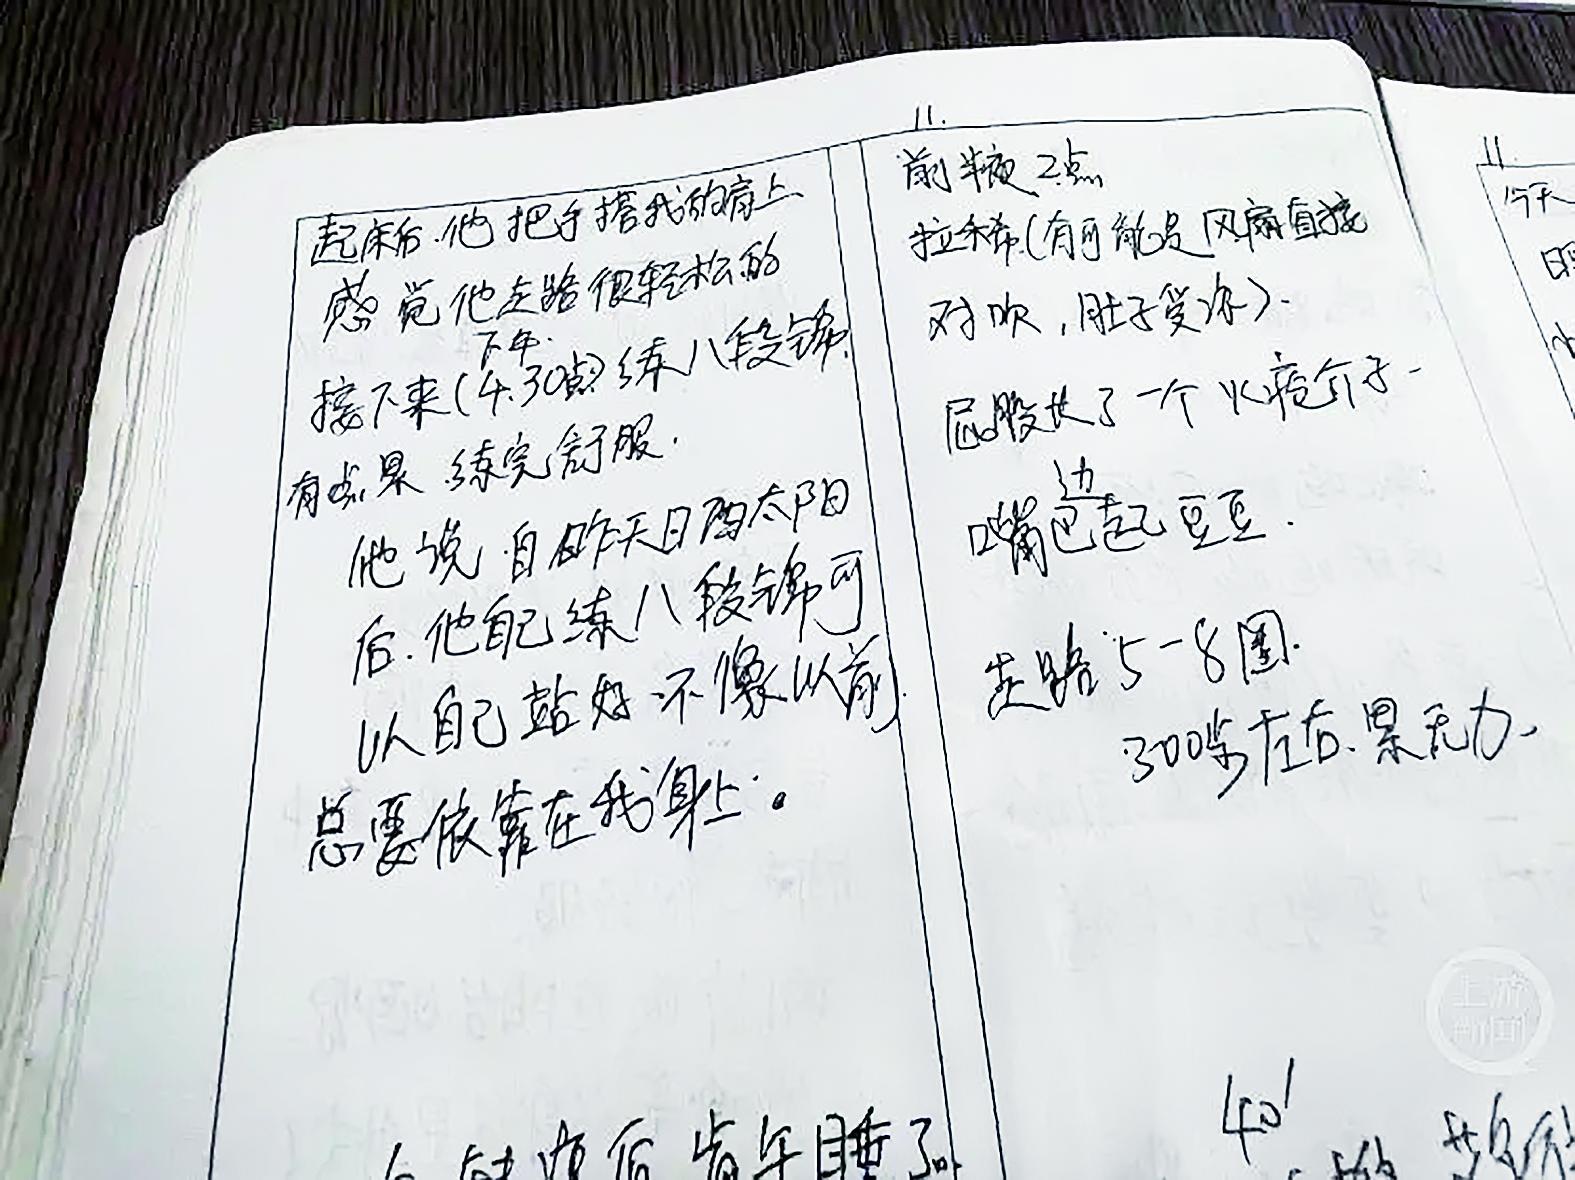 起床后.他把手搭我的肩上
感觉他走路很轻松的
下午.
接下来(4.30点)练八段锦.
有点累.练完舒服.
他说.自昨天日晒太阳
后.他自己练八段锦可
以自己站好.不像以前.
总要依靠在我身上.
11.
前半夜2点
拉余稀.(有可能是风扇直接
对吹,肚子受凉).
屁股长了一个火疮疖子-
边
嘴巴起豆豆.
走路5-8圈.
300步左右.累无力.
11.
今天
后 睡了
40'
上游新闻